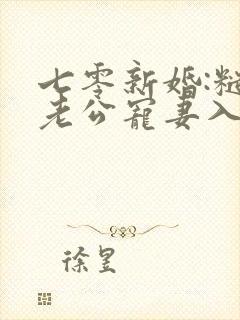 七零新婚:糙
老公宠妻入
徐昱